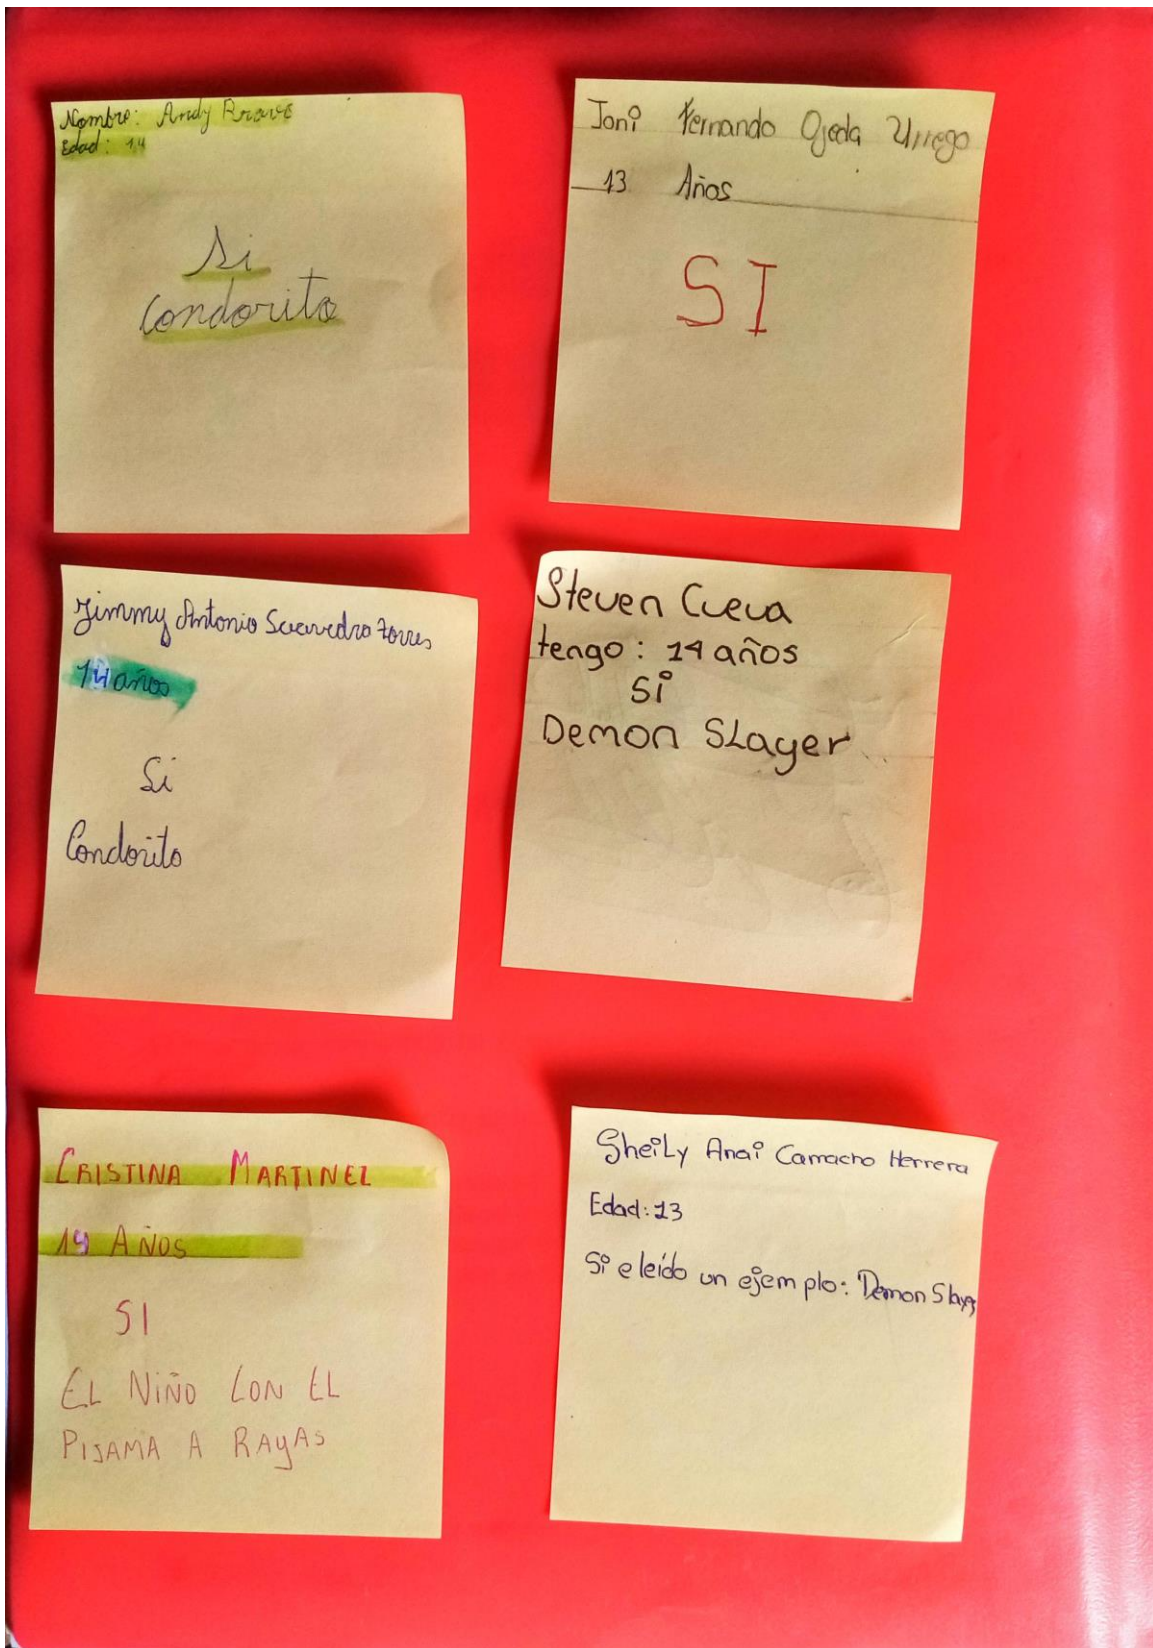 Nombre: Andy Bravo
Edad: 14
Si
Condorito
Joni Fernando Ojeda Urrego
13 Años
SI
Jimmy Antonio Saavedra Torres
14 años
Si
Condorito
Steven Cueva
tengo: 14 años
Si
Demon Slayer
CRISTINA MARTINEZ
14 AÑOS
SI
EL NIÑO CON EL
PIJAMA A RAYAS
Sheily Anai Camacho Herrera
Edad: 13
Si e leído un ejemplo: Demon Slayer